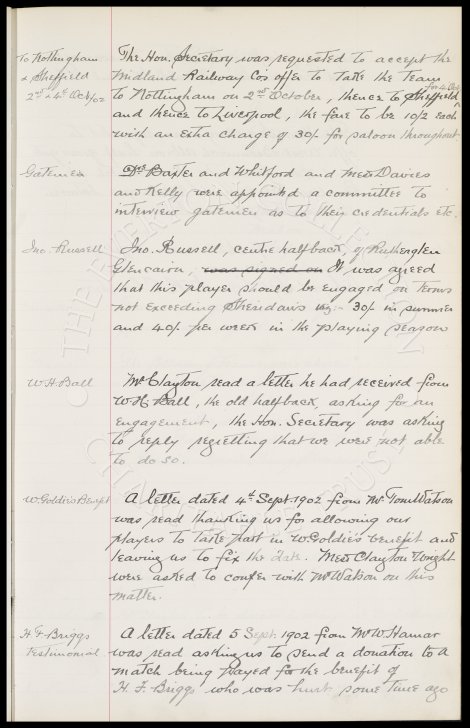 To Nottingham
& Sheffield
2nd & 4th Oct/02
The Hon. Secretary was requested to accept the
Midland Railway Co's offer to take the team
to Nottingham on 2nd October, thence to Sheffield for 4 Oct
and thence to Liverpool, the fare to be 10/2 each
with an extra charge of 30/- for saloon throughout
Gatemen
Drs Baxter and Whitford and Messrs Davies
and Kelly were appointed a committee to
interview gatemen as to their credentials etc.
Jno. Russell
Jno. Russell, centre halfback, of Rutherglen
Glencairn, was signed on It was agreed
that this player should be engaged on terms
not exceeding Sheridan's viz:- 30/- in summer
and 40/- per week in the playing season
W. H. Ball
Mr Clayton read a letter he had received from
W H Ball, the old halfback, asking for an
engagement, the Hon. Secretary was asking
to reply regretting that we were not able
to do so.
W. Goldie's Benefit
A letter dated 4th Sept. 1902 from Mr Tom Watson
was read thanking us for allowing our
players to take part in W Goldie's benefit and
leaving us to fix the date. Messrs Clayton Wright
were asked to confer with Mr Watson on this
matter.
H F Briggs
Testimonial
A letter dated 5 Sept 1902 from Mr W. Hamar
was read asking us to send a donation to a
match being played for the benefit of
H. F. Briggs who was hurt some time ago
THE EVERTON
CHARITABLE TRUST